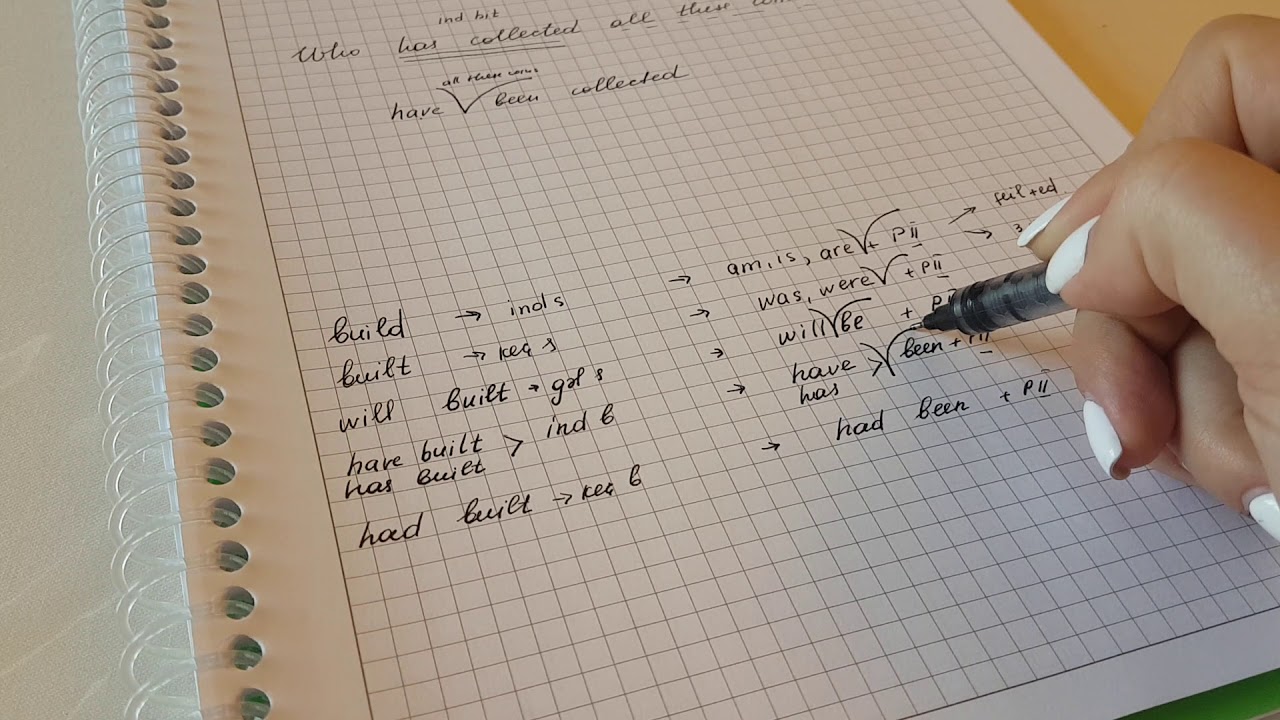 ind bit
Who has collected all these
all these coins
have been collected
build → ind s → am, is, are + PII → feil+ed
built → keç s → was, were + PII
will built → gəl s → will be + PII
have built > ind b → have > been + PII
has built has
had built → keç b → had been + PII